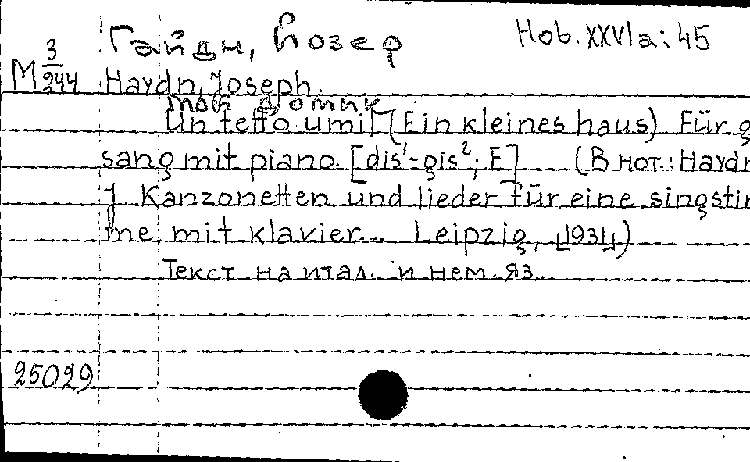 Гайдн, Йозеф
Hob. XXVIa: 45
M 3/244 Haydn, Joseph.
мой домик
Un tetto umil [Ein kleines haus) Für g
sang mit piano. [dis¹-gis²; E] (В нот.: Haydn
J Kanzonetten und lieder für eine singstim
me mit klavier... Leipzig, [1931])
Текст на итал. и нем. яз.
25029